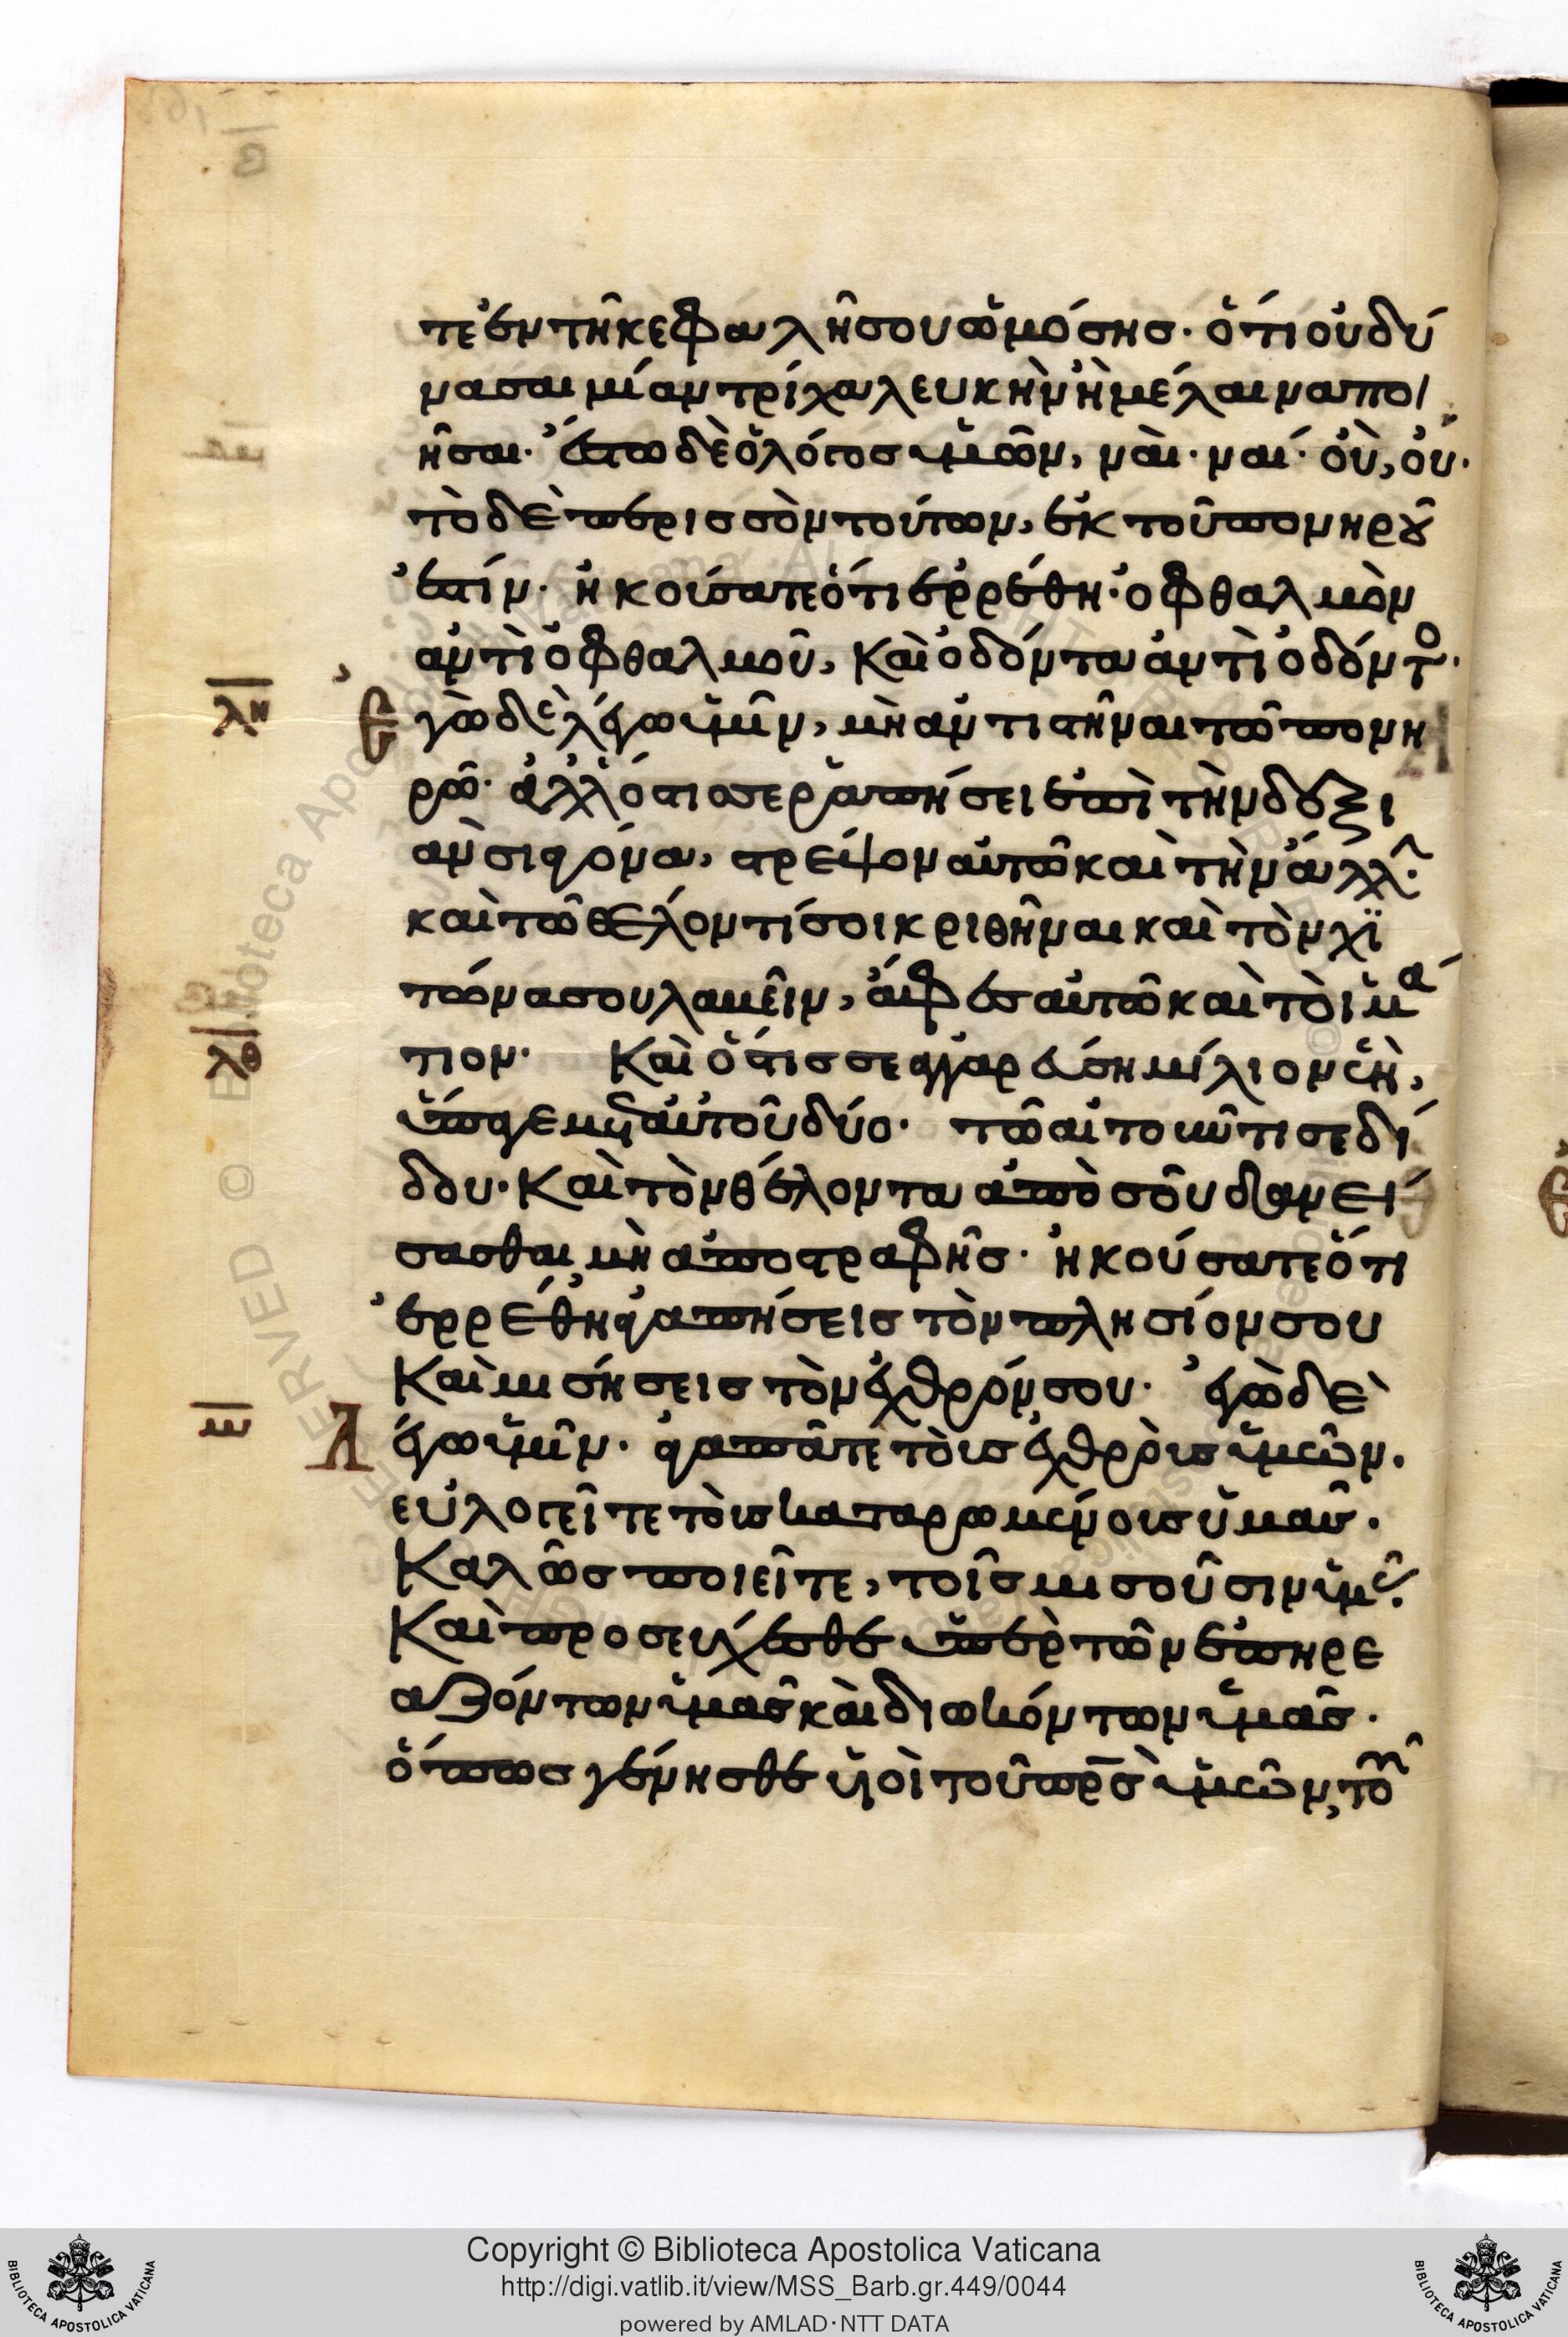 τε ἐν τῆ κεφαλῆ σου ὠμόσης· ὅτι οὐ δύ
νασαι μίαν τρίχα λευκὴν ἢ μέλαιναν ποι
ῆσαι· ἔστω δὲ ὁ λόγος ὑμῶν, ναὶ· ναί· οὺ, οὔ·
τὸ δὲ περισσὸν τούτων, ἐκ τοῦ πονηροῦ
ἐστίν· ἠκούσατε ὅτι ἐρρέθη· ὀφθαλμὸν
ἀντὶ ὀφθαλμοῦ, Καὶ ὀδόντα ἀντὶ ὀδόντο·
λη Ἐγὼ δὲ λέγω ὑμῖν, μὴ ἀντιστῆναι τῶ πονη
ρῶ· ἀλλ' ὅστις σε ῥαπήσει ἐπὶ τὴν δεξι
ὰν σιαγόνα, στρέψον αὐτῶ καὶ τὴν ἄλλ·
καὶ τῶ θέλοντί σοι κριθῆναι καὶ τὸν χϊ
τώνα σου λαβεῖν, ἄφες αὐτῶ καὶ τὸ ἱμά
λθ τιον· Καὶ ὅστις σε ἀγγαρεύση μίλιον ἓν,
ὕπαγε μετ' αὐτοῦ δύο· τῶ αἰτοῦντι σε δί
δου· Καὶ τὸν θέλοντα ἀπὸ σοῦ δανεί
σασθαι, μὴ ἀποστραφῆς· ἠκούσατε ὅτι
ἐρρέθη, ἀγαπήσεις τὸν πλησίον σου
Καὶ μισήσεις τὸν ἐχθρόν σου· ἐγὼ δὲ
Λέγω ὑμῖν· ἀγαπᾶτε τοὺς ἐχθροὺς ὑμῶν.
εὐλογεῖτε τοὺς καταρωμένους ὑμᾶς·
Καλῶς ποιεῖτε, τοῖς μισοῦσιν ὑμᾶς·
Καὶ προσεύχεσθε ὑπὲρ τῶν ἐπηρε
αζόντων ὑμᾶς καὶ διωκόντων ὑμᾶς·
ὅπως γένησθε υἱοὶ τοῦ πρς ὑμῶν, τοῦ
Copyright © Biblioteca Apostolica Vaticana
http://digi.vatlib.it/view/MSS_Barb.gr.449/0044
powered by AMLAD·NTT DATA
BIBLIOTECA APOSTOLICA VATICANA
BIBLIOTECA APOSTOLICA VATICANA